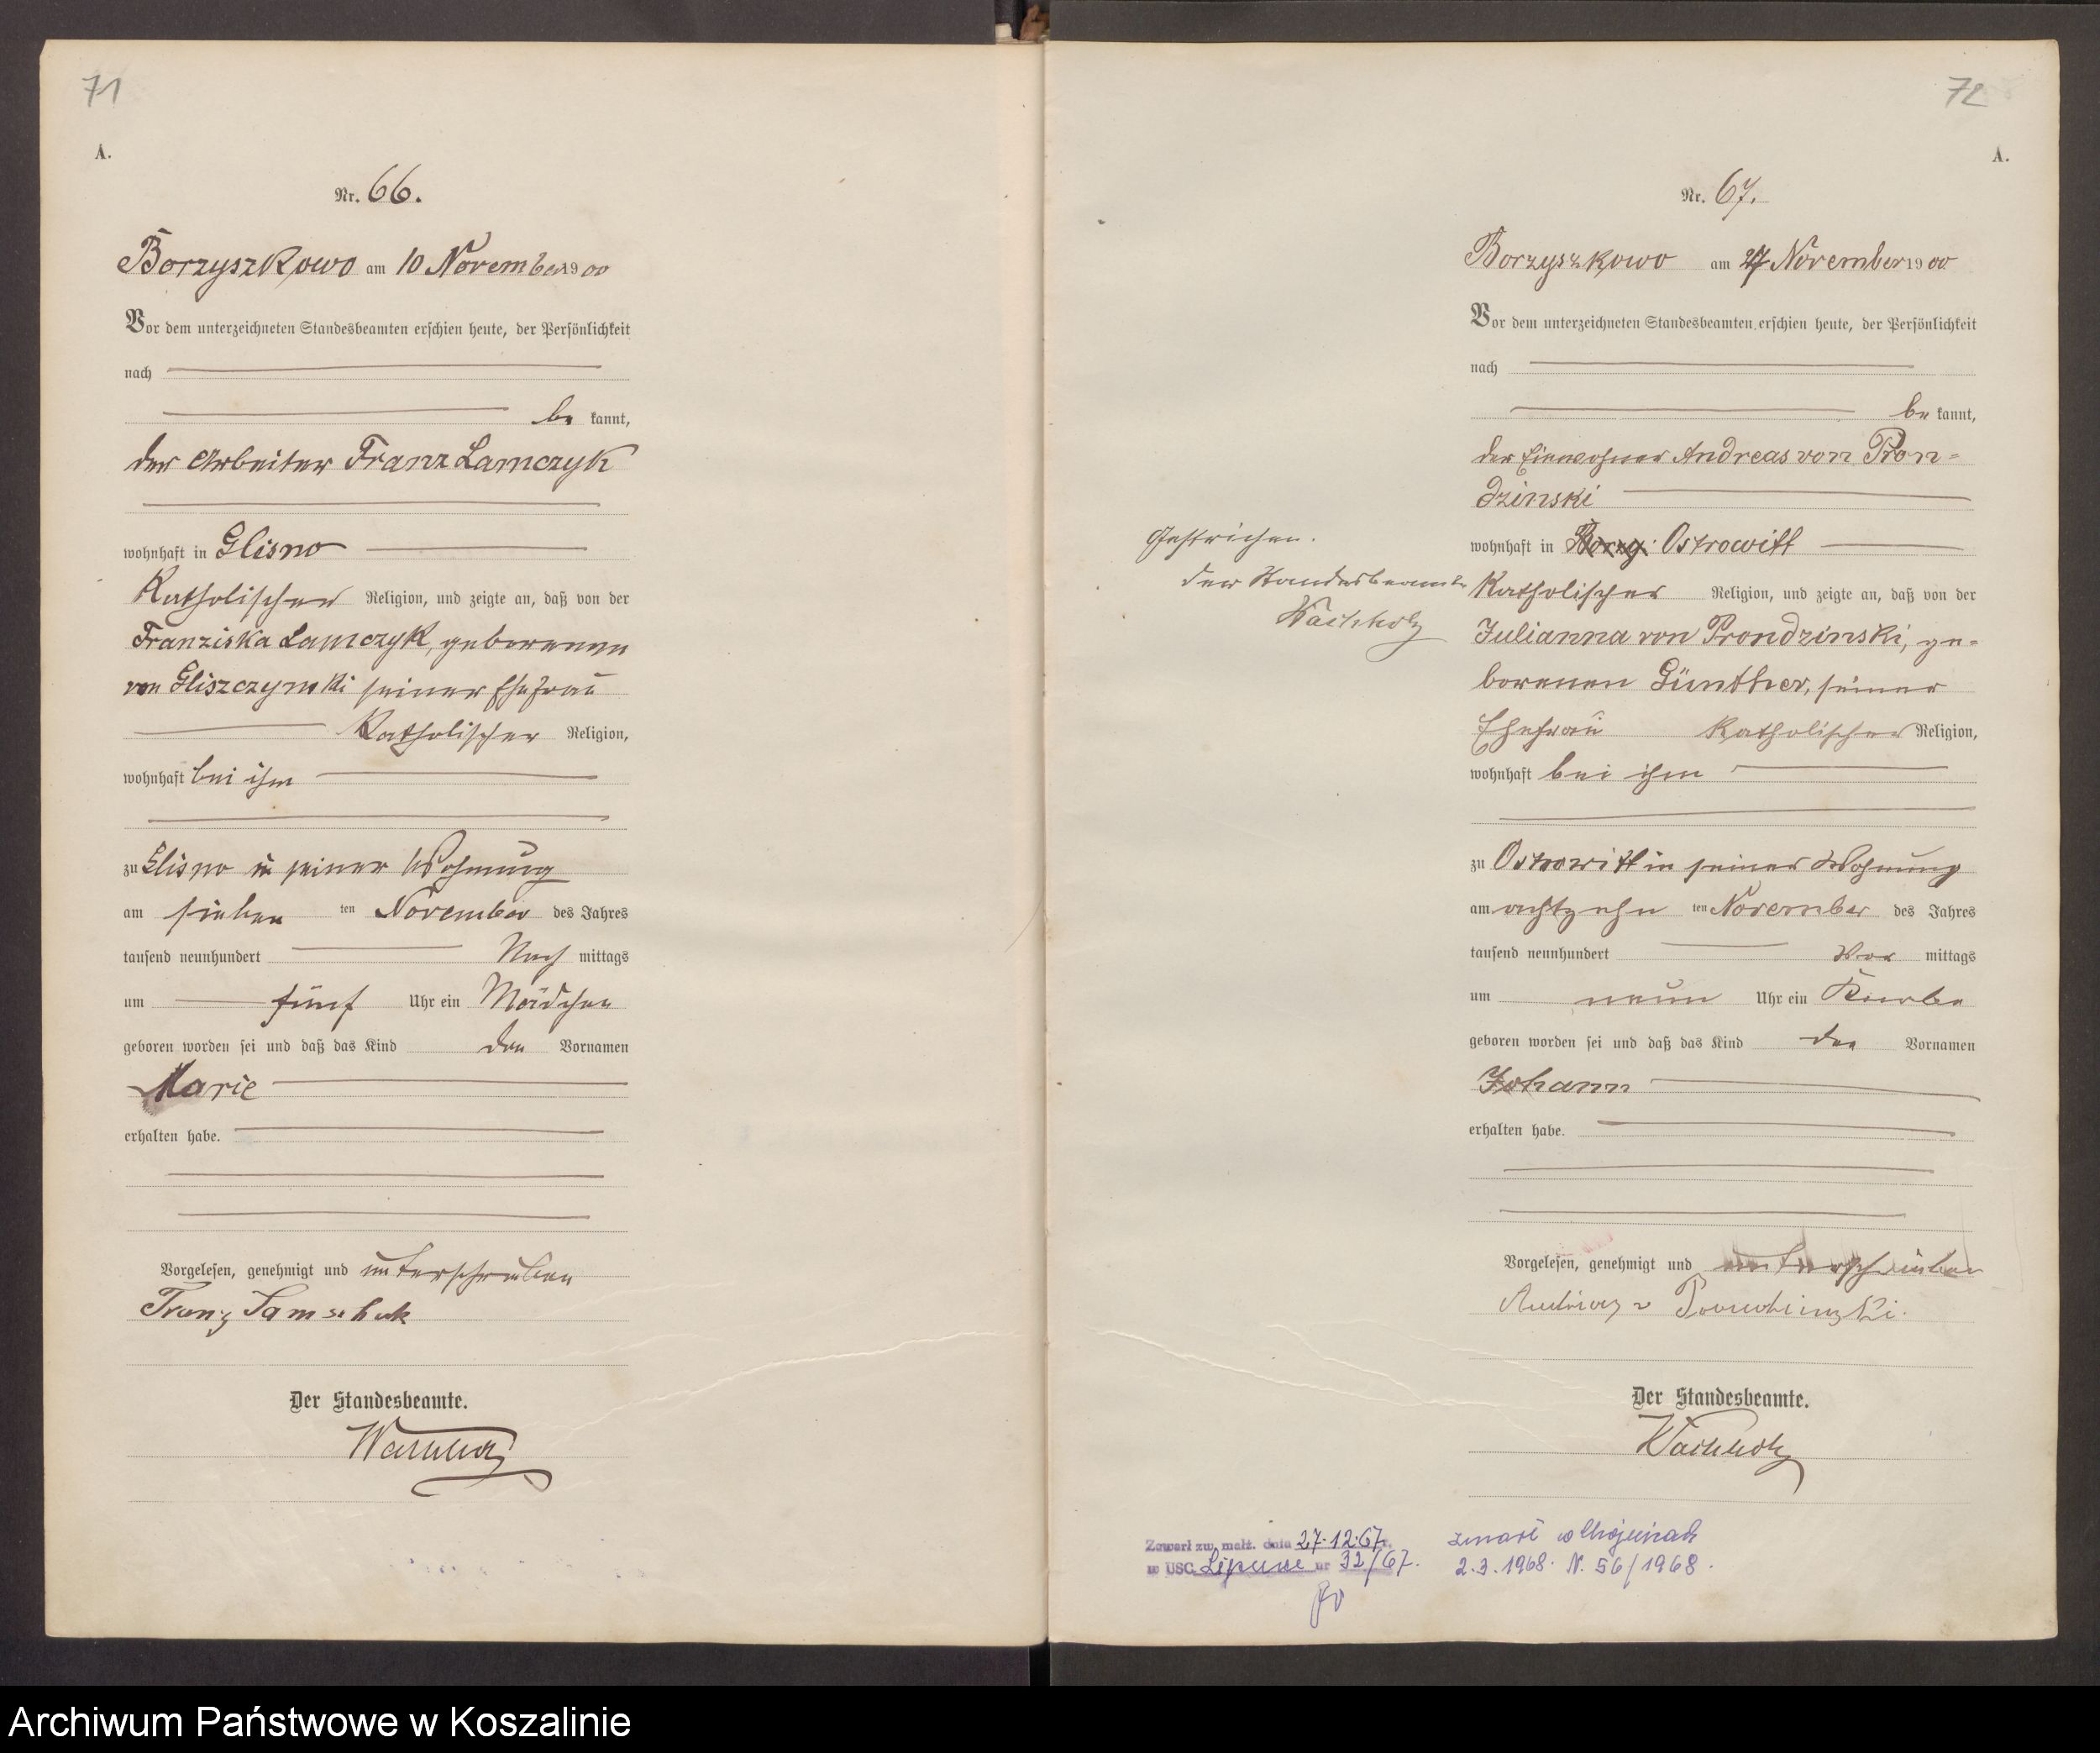 71
A.
Nr. 66.
Borzyszkowo am 10 November 1900
Vor dem unterzeichneten Standesbeamten erschien heute, der Persönlichkeit
nach
be kannt,
der Arbeiter Franz Lamczyk
wohnhaft in Glisno
Katholischer Religion, und zeigte an, daß von der
Franziska Lamczyk, geborenen
von Gliszczynski seiner Ehefrau
Katholischer Religion,
wohnhaft bei ihm
zu Glisno in seiner Wohnung
am sieben ten November des Jahres
tausend neunhundert Nach mittags
um fünf Uhr ein Mädchen
geboren worden sei und daß das Kind den Vornamen
Marie
erhalten habe.
Vorgelesen, genehmigt und unterschrieben
Franz Lamschek
Der Standesbeamte.
Wachholz
72
A.
Nr. 67.
Borzyszkowo am November 1900
Vor dem unterzeichneten Standesbeamten erschien heute, der Persönlichkeit
nach
be kannt,
der Einwohner Andreas von Pron-
dzinski
wohnhaft in Borzy. Ostrowitt
Katholischer Religion, und zeigte an, daß von der
Julianna von Prondzinski, ge-
borenen Günther, seiner
Ehefrau Katholischer Religion,
wohnhaft bei ihm
zu Ostrowitt in seiner Wohnung
am achtzehn ten November des Jahres
tausend neunhundert Vor mittags
um neun Uhr ein Knabe
geboren worden sei und daß das Kind den Vornamen
Johann
erhalten habe.
Vorgelesen, genehmigt und unterschrieben
Andreas v Prondzinski.
Der Standesbeamte.
Wachholz
Gestrichen.
der Standesbeamte
Wachholz
Zawarł zw. małż. dnia 27.12.67 r.
w USC Lipusz nr 32/67.
zmarł w Chojnicach
2.3.1968. N. 56/1968.
Archiwum Państwowe w Koszalinie